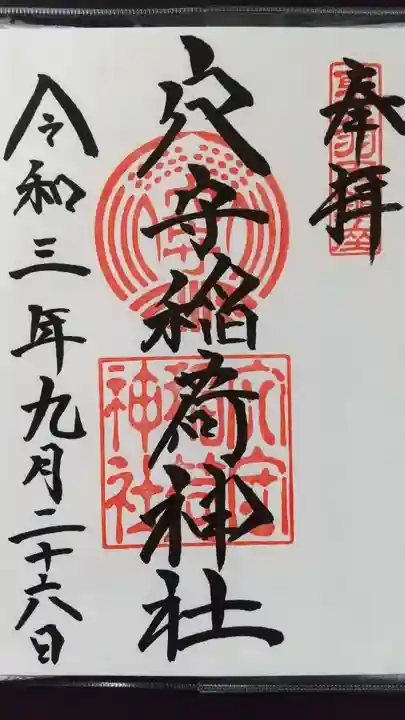 奉拝
穴守稲荷神社
令和三年九月二十六日
穴守稲荷神社